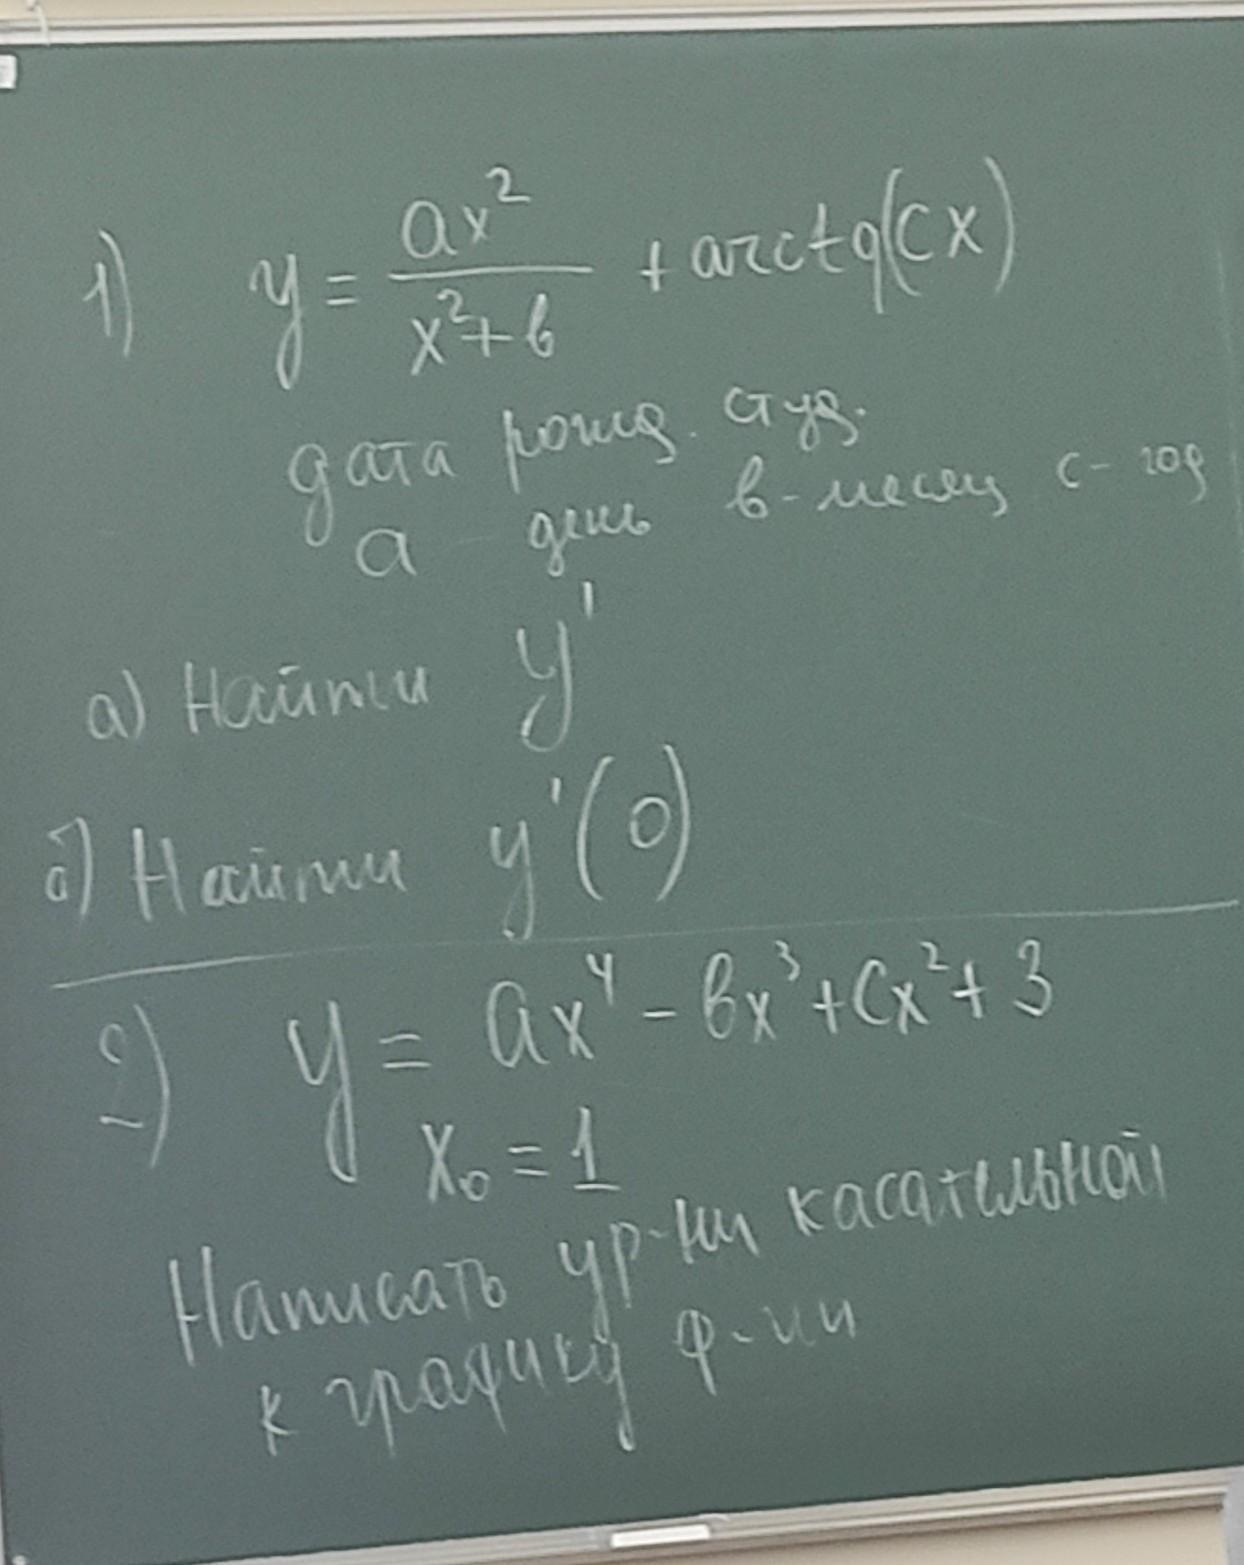 1) y = ax²/(x²+в) + arctg(cx)
дата рожд. студ.
а - день в-месяц с-год
а) Найти y'
б) Найти y'(0)
2) y = ax⁴ - вx³ + cx² + 3
x₀ = 1
Написать ур-ни касательной
к графику ф-ии